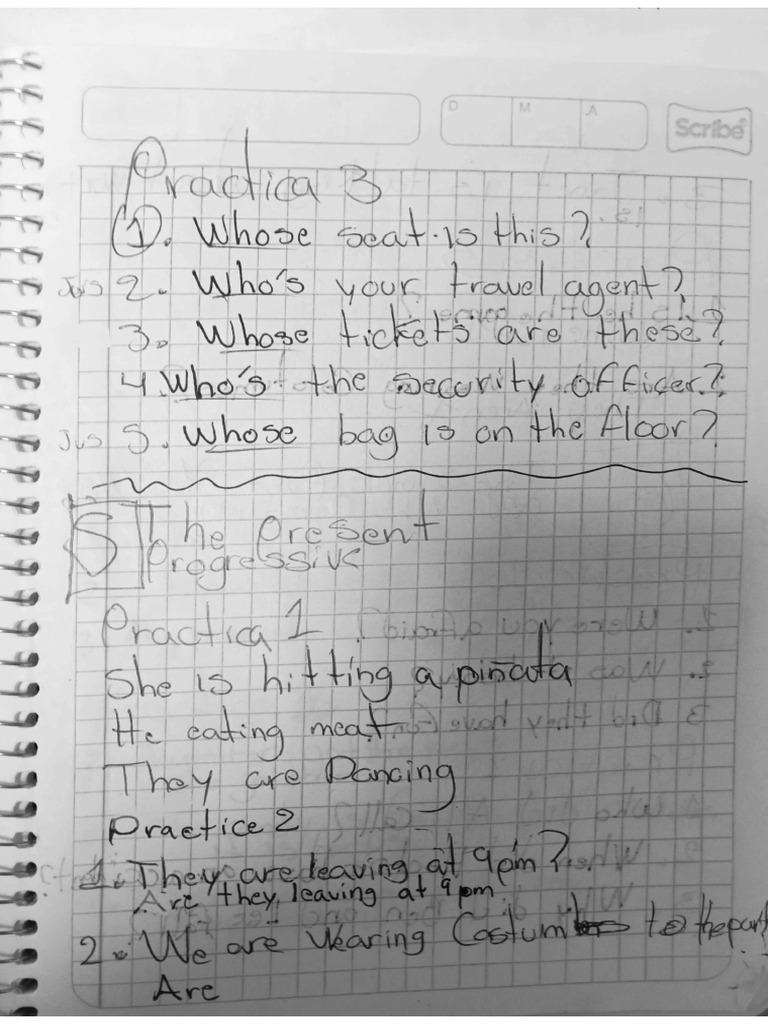 D M A
Scribe
Practica 3
1. Whose seat is this?
Jus 2. Who's your travel agent?
3. Whose tickets are these?
4. Who's the security officer?
Jus 5. Whose bag is on the floor?
5 The Present
Progressive
Practica 1
She is hitting a piñata
He eating meat
They are Dancing
Practice 2
1. They are leaving at 9pm?
Are they leaving at 9pm
2. We are wearing Costum to the part
Are